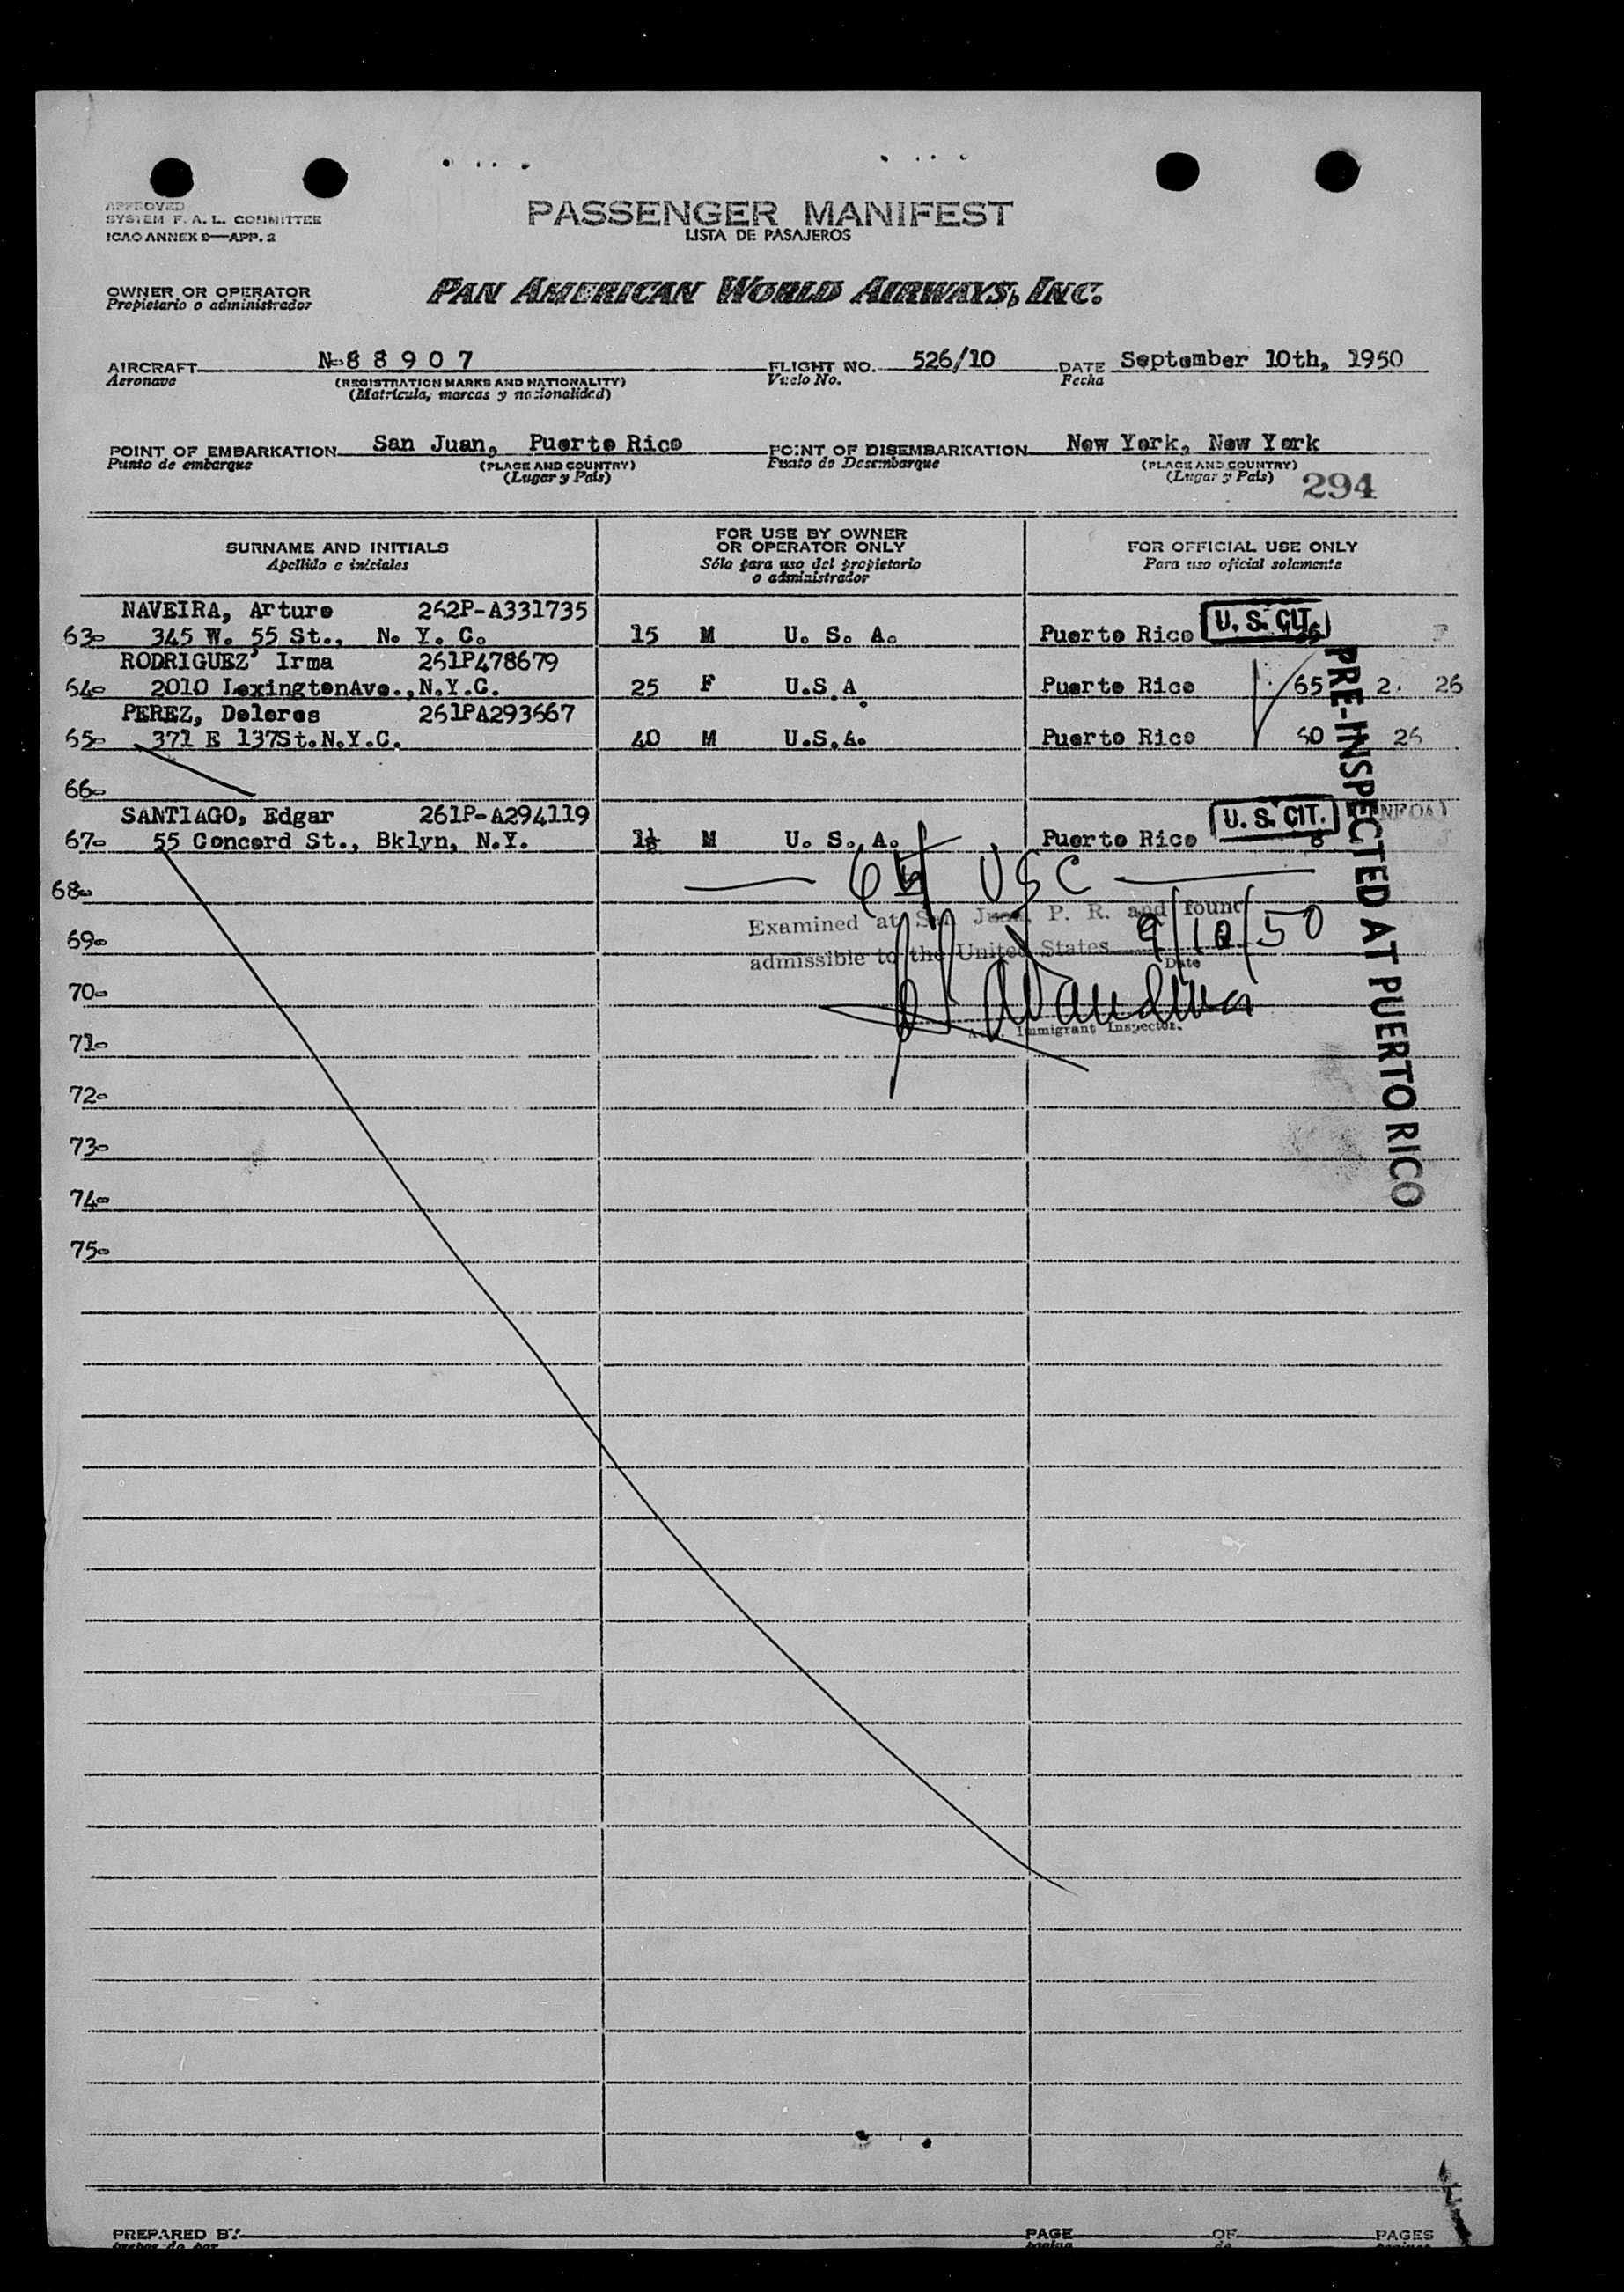 APPROVED
SYSTEM F. A. L. COMMITTEE
ICAO ANNEX 9—APP. 2
PASSENGER MANIFEST
LISTA DE PASAJEROS
OWNER OR OPERATOR
Propietario o administrador
PAN AMERICAN WORLD AIRWAYS, INC.
AIRCRAFT N-8 8 9 0 7 FLIGHT NO. 526/10 DATE September 10th, 1950
Aeronave (REGISTRATION MARKS AND NATIONALITY) Vuelo No. Fecha
(Matrícula, marcas y nacionalidad)
POINT OF EMBARKATION San Juan, Puerto Rico POINT OF DISEMBARKATION New York, New York
Punto de embarque (PLACE AND COUNTRY) Punto de Desembarque (PLACE AND COUNTRY)
(Lugar y País) (Lugar y País) 294
SURNAME AND INITIALS FOR USE BY OWNER OR OPERATOR ONLY FOR OFFICIAL USE ONLY
Apellido e iniciales Sólo para uso del propietario o administrador Para uso oficial solamente
NAVEIRA, Arturo 262P-A331735 U. S. CIT.
63- 345 W. 55 St., N. Y. C. 15 M U. S. A. Puerto Rico
RODRIGUEZ, Irma 261P478679
64- 2010 LexingtonAve.,N.Y.C. 25 F U.S.A. Puerto Rico 65 2. 26
PEREZ, Dolores 261PA293667
65- 371 E 137St.N.Y.C. 40 M U.S.A. Puerto Rico 26
66-
SANTIAGO, Edgar 261P-A294119 U. S. CIT.
67- 55 Concord St., Bklyn, N.Y. M U. S. A. Puerto Rico 8
68- USC
Examined at San Juan, P. R. and found
69- 9/10/50
admissible to the United States
Date
70-
Immigrant Inspector.
71-
72-
73-
74-
75-
PRE-INSPECTED AT PUERTO RICO
PREPARED BY PAGE OF PAGES